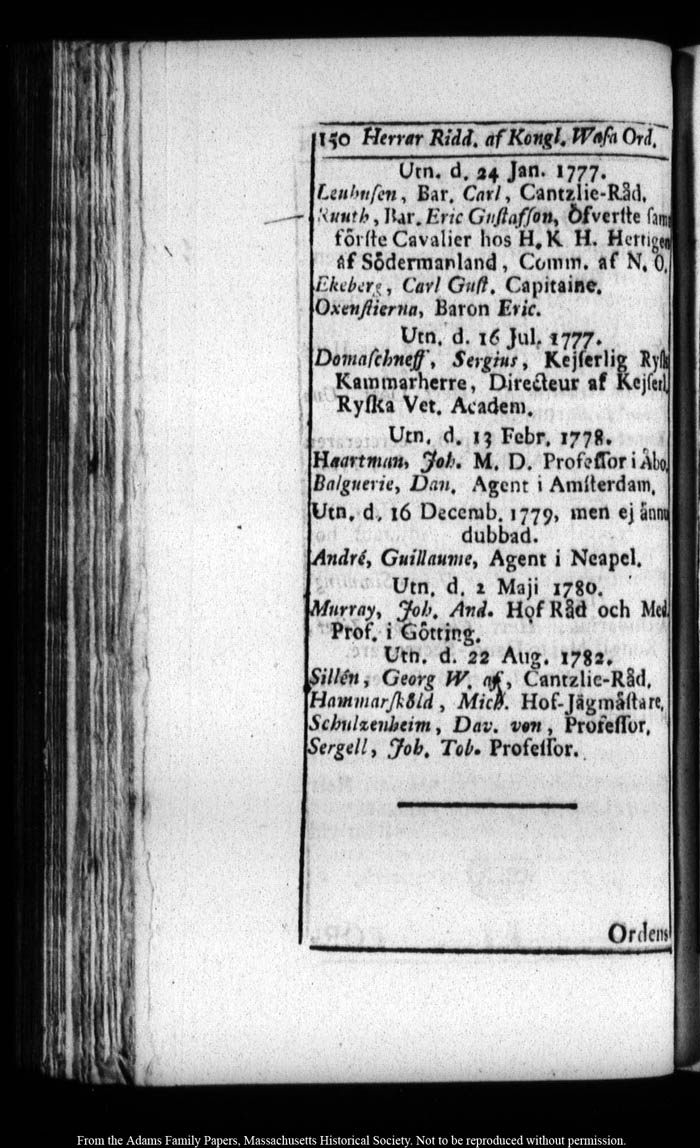 150 Herrar Ridd. af Kongl. Waſa Ord.
Utn. d. 24 Jan. 1777.
Leuhuſen, Bar. Carl, Cantzlie-Råd.
Ruuth, Bar. Eric Guſtafſon, Öfverſte ſamt
förſte Cavalier hos H. K H. Hertigen
af Södermanland, Comm. af N. O.
Ekeberg, Carl Guſt. Capitaine.
Oxenſtierna, Baron Eric.
Utn. d. 16 Jul. 1777.
Domaſchneff, Sergius, Kejſerlig Ryſk
Kammarherre, Directeur af Kejſerl.
Ryſka Vet. Academ.
Utn. d. 13 Febr. 1778.
Haartman, Joh. M. D. Profeſſor i Åbo.
Balguerie, Dan. Agent i Amſterdam.
Utn. d. 16 Decemb. 1779, men ej ännu
dubbad.
André, Guillaume, Agent i Neapel.
Utn. d. 2 Maji 1780.
Murray, Joh. And. Hof Råd och Med.
Prof. i Götting.
Utn. d. 22 Aug. 1782.
Sillén, Georg W. af, Cantzlie-Råd.
Hammarſköld, Mich. Hof-Jägmäſtare.
Schulzenheim, Dav. von, Profeſſor.
Sergell, Joh. Tob. Profeſſor.
Ordens
From the Adams Family Papers, Massachusetts Historical Society. Not to be reproduced without permission.